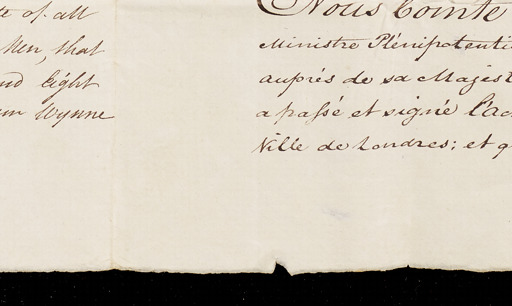 of all
Men, that
Eight
Wynne
Nous Comte
Ministre Plénipotenti
auprés de sa Majest
a passé et signée l'ac
Ville de Londres; et q